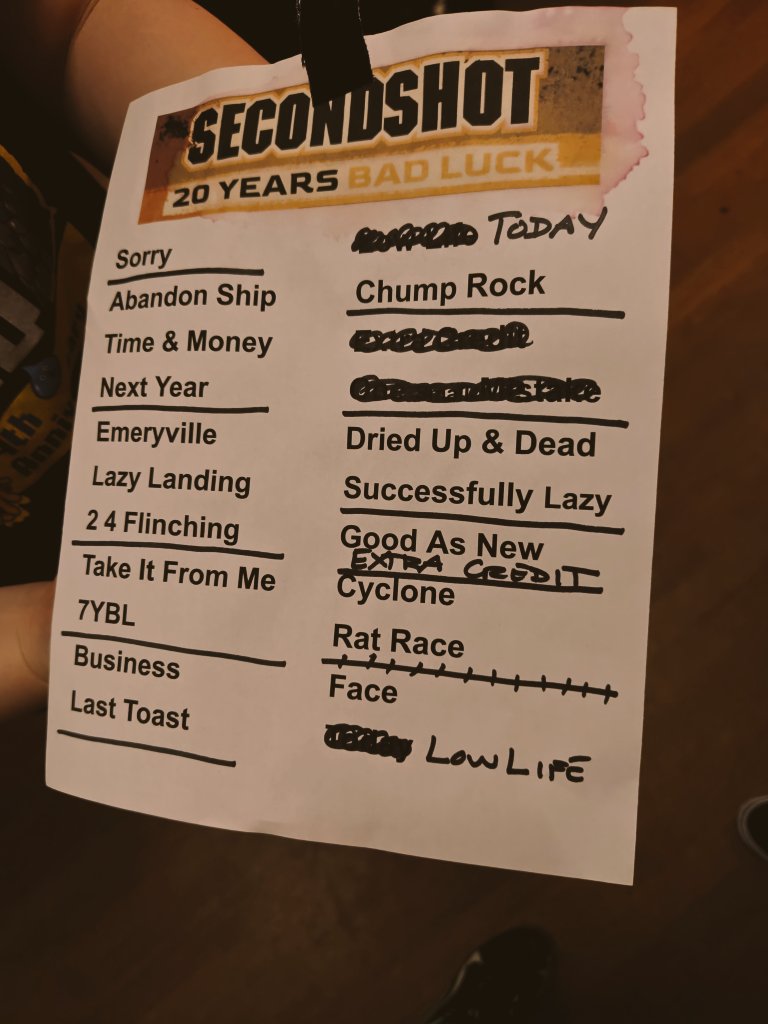 SECONDSHOT
20 YEARS BAD LUCK
Sorry
Abandon Ship
Time & Money
Next Year
Emeryville
Lazy Landing
2 4 Flinching
Take It From Me
7YBL
Business
Last Toast
TODAY
Chump Rock
Dried Up & Dead
Successfully Lazy
Good As New
EXTRA CREDIT
Cyclone
Rat Race
Face
LOW LIFE